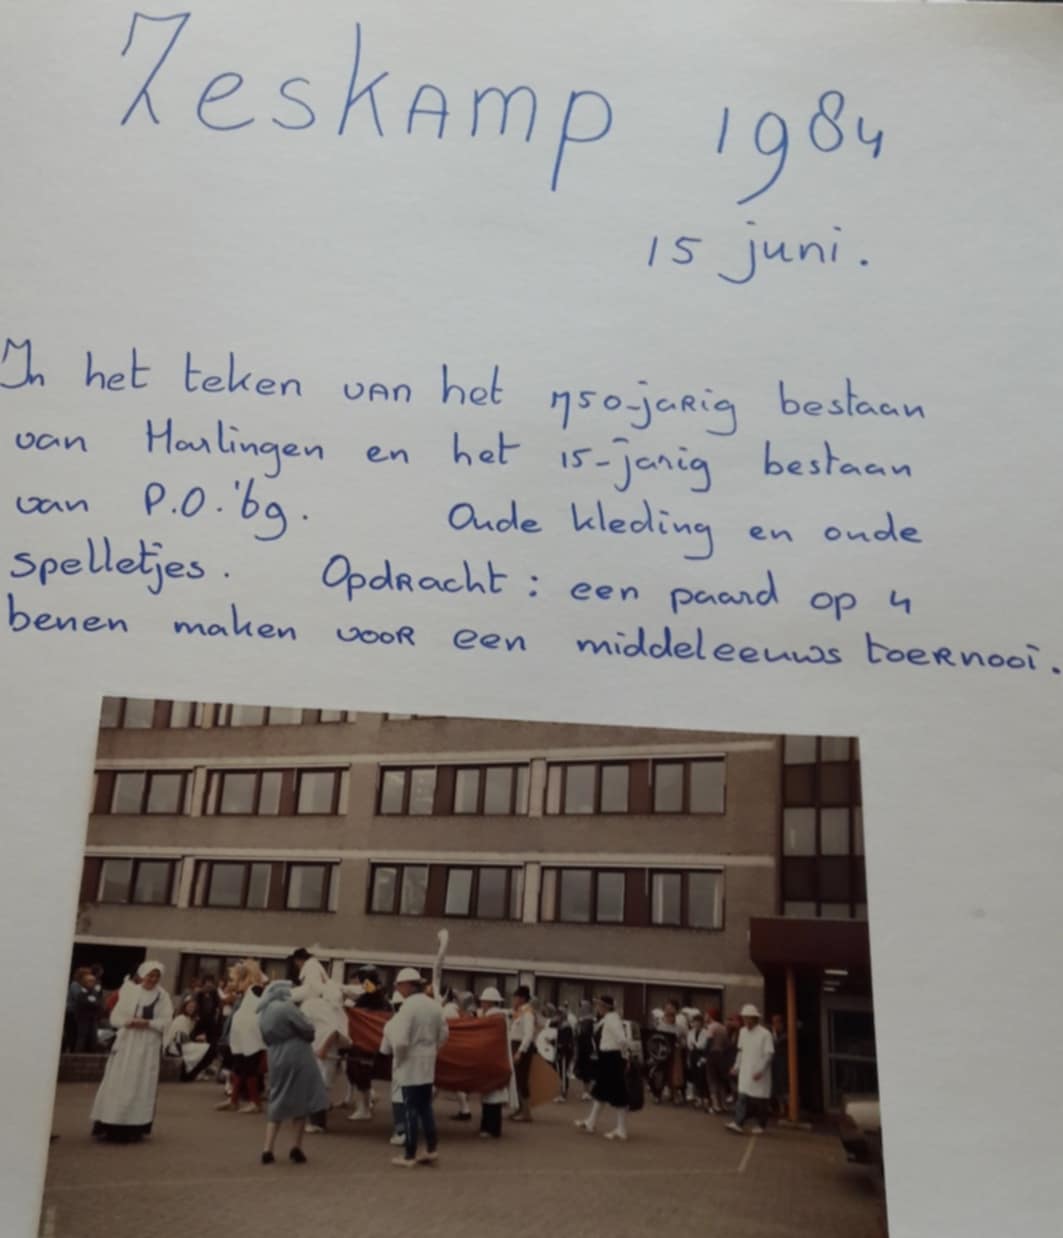 Zeskamp 1984
15 juni.
In het teken van het 750-jarig bestaan
van Harlingen en het 15-jarig bestaan
van P.O.'bg. Oude kleding en oude
spelletjes. Opdracht: een paard op 4
benen maken voor een middeleeuws toernooi.